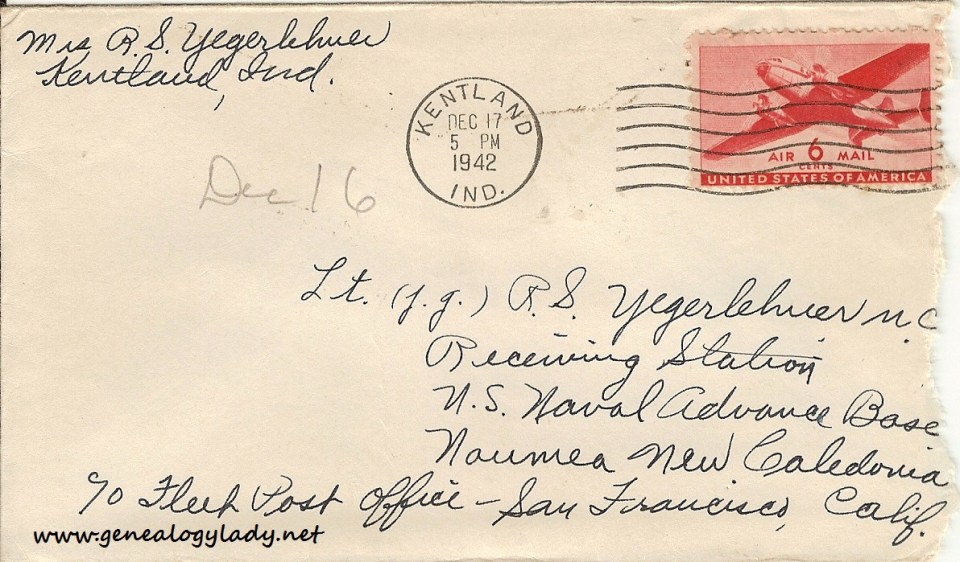 Mrs R. S. Yegerlehner
Kentland, Ind.
KENTLAND
DEC 17
5 PM
1942
IND.
AIR 6 MAIL
CENTS
UNITED STATES OF AMERICA
Dec 16
Lt. (j.g.) R. S. Yegerlehner
Receiving Station
U.S. Naval Advance Base
Noumea New Caledonia
c/o Fleet Post Office - San Francisco, Calif.
www.genealogylady.net